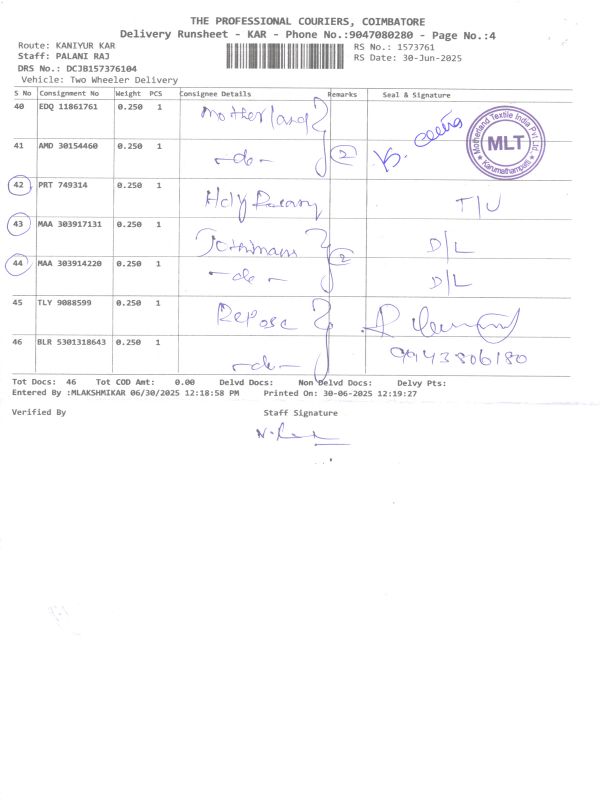 THE PROFESSIONAL COURIERS, COIMBATORE
Delivery Runsheet - KAR - Phone No.:9047080280 - Page No.:4
Route: KANIYUR KAR
RS No.: 1573761
Staff: PALANI RAJ
RS Date: 30-Jun-2025
DRS No.: DCJB157376104
Vehicle: Two Wheeler Delivery
S No Consignment No Weight PCS Consignee Details Remarks Seal & Signature
40 EDQ 11861761 0.250 1 Motherland
Motherland Textile India Pvt Ltd
MLT
Karumathampatti
41 AMD 30154460 0.250 1 -do- 2
42 PRT 749314 0.250 1 Holy T/U
43 MAA 303917131 0.250 1 2 D/L
44 MAA 303914220 0.250 1 -do- D/L
45 TLY 9088599 0.250 1 Repose
46 BLR 5301318643 0.250 1 -do- 9943806180
Tot Docs: 46 Tot COD Amt: 0.00 Delvd Docs: Non Delvd Docs: Delvy Pts:
Entered By :MLAKSHMIKAR 06/30/2025 12:18:58 PM Printed On: 30-06-2025 12:19:27
Verified By Staff Signature